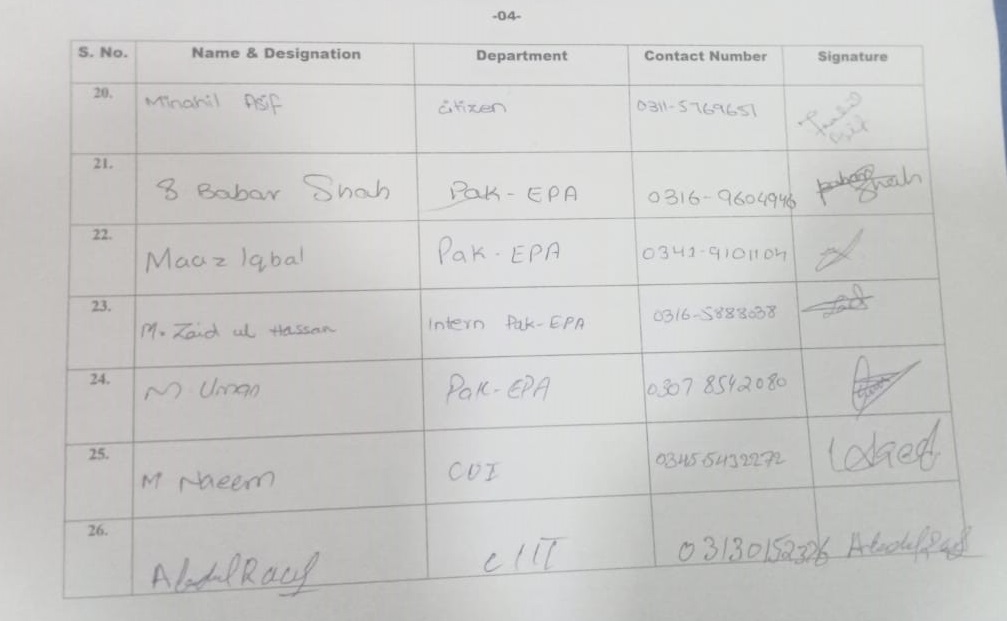 -04-
S. No. Name & Designation Department Contact Number Signature
20. Minahil Asif citizen 0311-5769651
21. S Babar Shah Pak-EPA 0316-9604946 Shah
22. Maaz Iqbal Pak-EPA 0341-9101104
23. M. Zaid ul Hassan Intern Pak-EPA 0316-5883038
24. M. Umar Pak-EPA 0307 8542080
25. M Naeem CUI 0345-5432272
26. Abdul Rauf CIIT 03130152326 Abdul Rauf